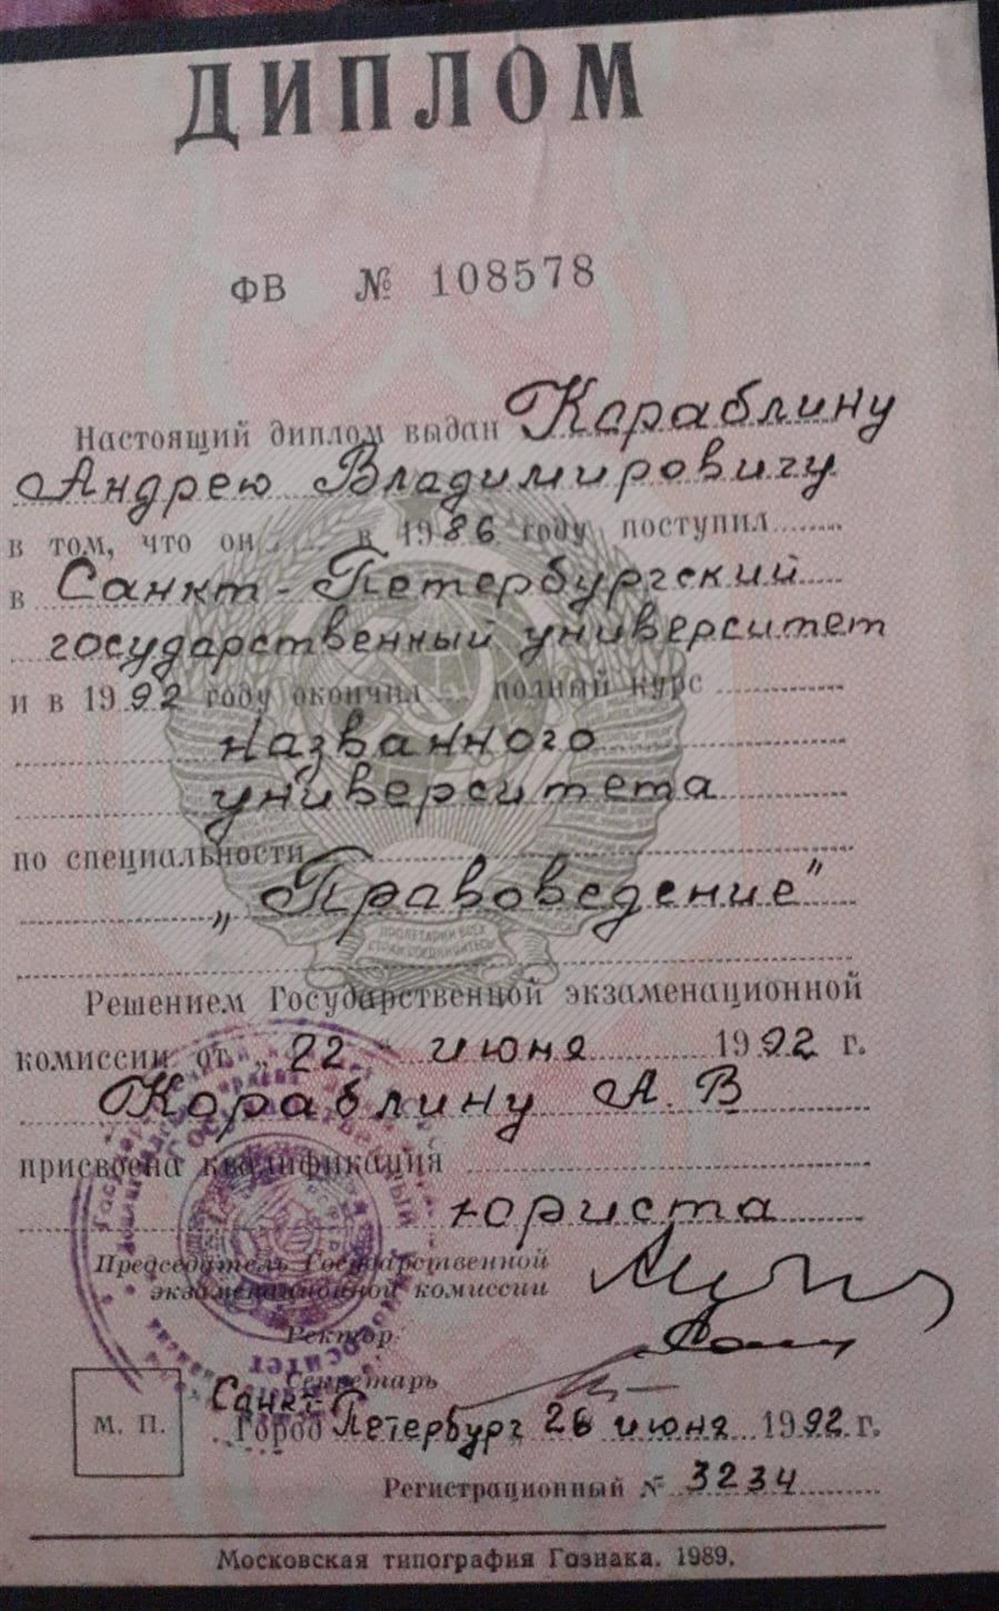 ДИПЛОМ
ФВ № 108578
Настоящий диплом выдан Кораблину
Андрею Владимировичу
в том, что он в 1986 году поступил
в Санкт-Петербургский
государственный университет
и в 1992 году окончил полный курс
названного
университета
по специальности
„Правоведение"
ПРОЛЕТАРИИ ВСЕХ
СТРАН СОЕДИНЯЙТЕСЬ
Решением Государственной экзаменационной
комиссии от „22" июня 1992 г.
Кораблину А. В
присвоена квалификация
юриста
Председатель Государственной
экзаменационной комиссии
Ректор
Секретарь
М. П.
Санкт-
Город Петербург „26 июня 1992 г.
Регистрационный № 3234
Московская типография Гознака. 1989.